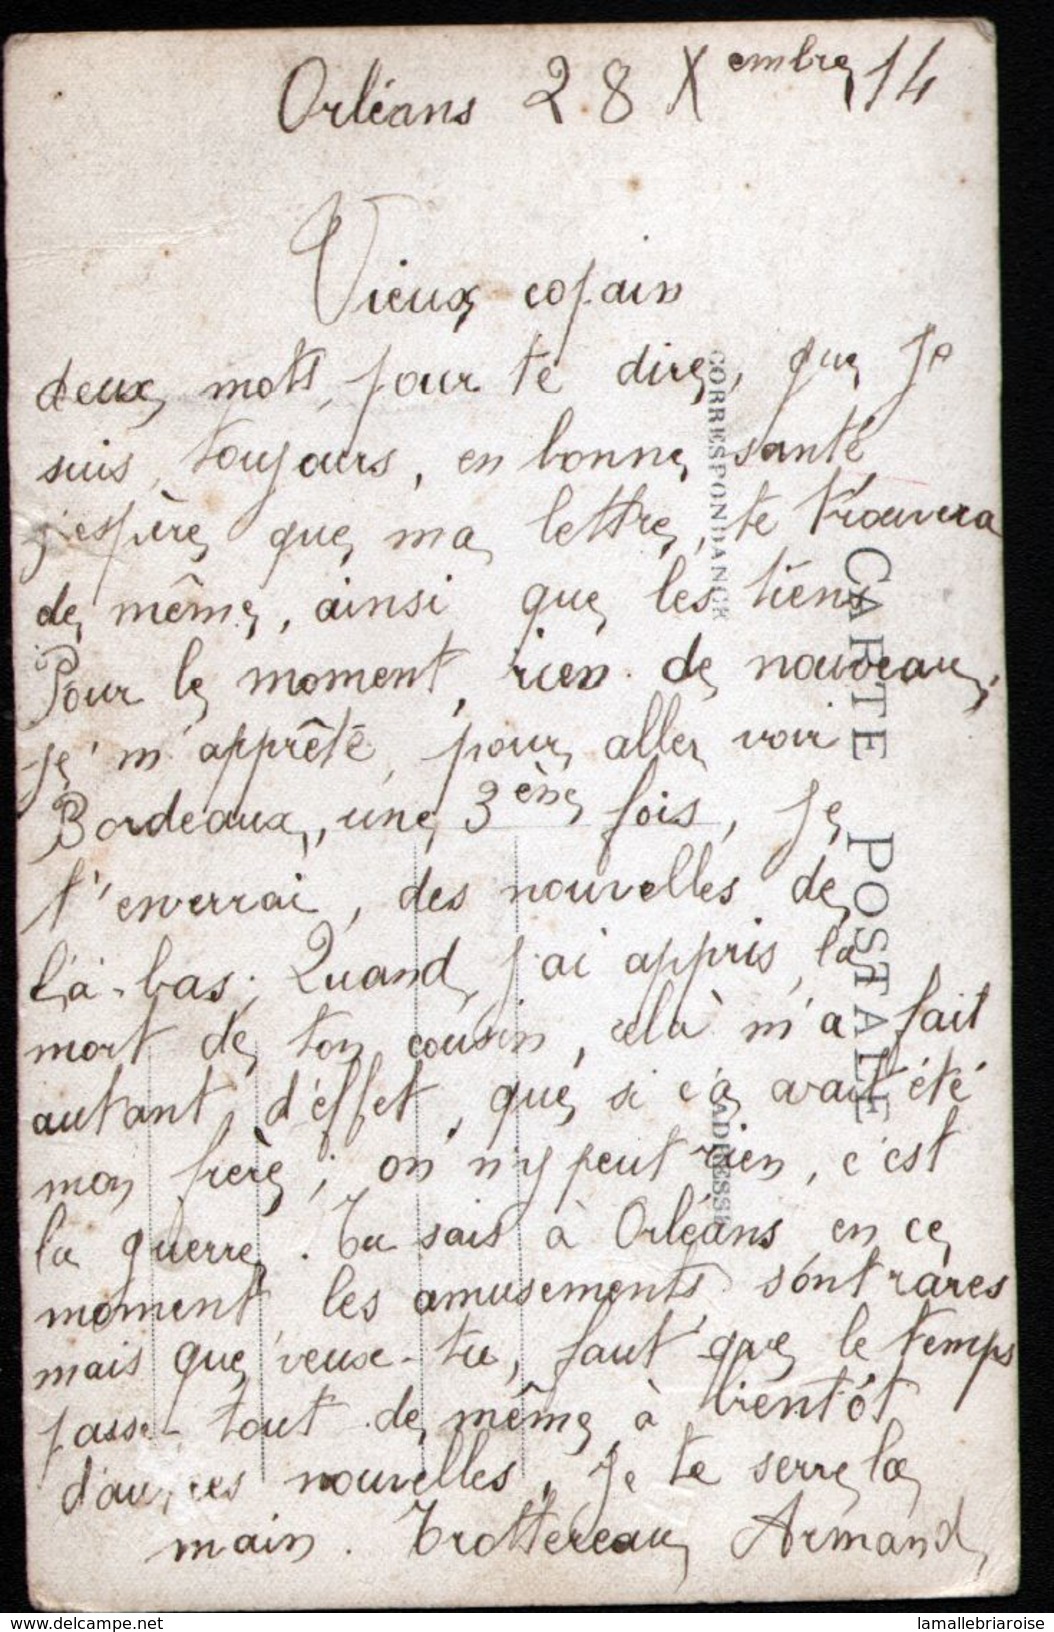 Orléans 28 Xembre 14
Vieux copain
deux mots, pour te dire, que je
suis, toujours, en bonne santé
j'espère que ma lettre, te trouvera
de même, ainsi que les tiens
Pour le moment, rien de nouveau,
je m'apprête, pour aller voir
Bordeaux, une 3ème fois, je
t'enverrai, des nouvelles de
là-bas; Quand j'ai appris, la
mort de ton cousin, celà m'a fait
autant d'effet, que si c'a avait été
mon frère; on n'y peut rien, c'est
la guerre. Tu sais à Orléans en ce
moment les amusements sont rares
mais que veux-tu, faut que le temps
passe tout de même à bientôt
d'autres nouvelles, je te serre la
main. Trottereau Armand
CORRESPONDANCE
CARTE POSTALE
ADRESSE
www.delcampe.net
lamallebriaroise